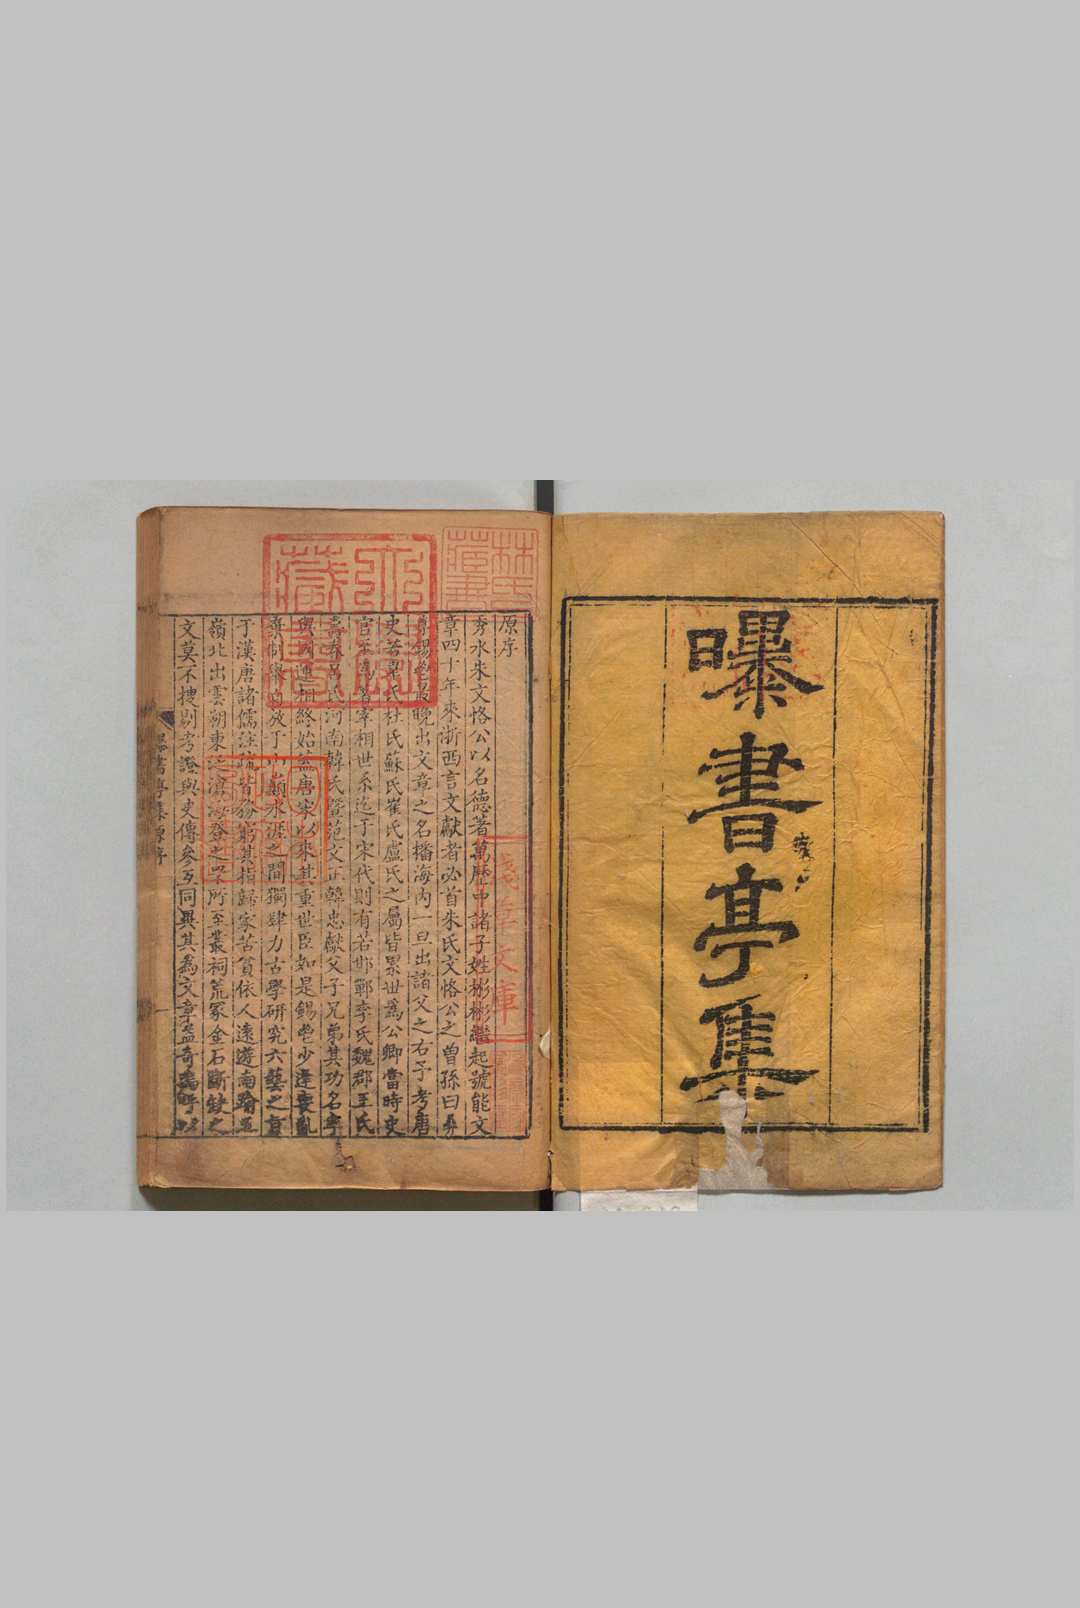 曝書亭集
原序
秀水朱文恪公以名德著萬歷中諸子姓彬彬繼起號能文
章四十年來浙西言文獻者必首朱氏文恪公之曾孫曰彝
尊錫鬯最晚出文章之名播海內一旦出諸父之右予考唐
史若韋氏杜氏蘇氏崔氏盧氏之屬皆累世為公卿當時史
官至為著宰相世系迄于宋代則有若邯鄲李氏魏郡王氏
壽春呂氏河南韓氏暨范文正韓忠獻父子兄弟其功名率
與國運相終始蓋唐宋以來其重世臣如是錫鬯少逢喪亂
棄制舉自放于山巔水涯之間獨肆力古學研究六藝之旨
于漢唐諸儒注疏皆務窮其指歸家苦貧依人遠遊南踰五
嶺北出雲朔東泛滄海登之罘所至叢祠荒冢金石斷缺之
文莫不搜剔考證與史傳參互同異其為文章益奇偉呼以
曝書亭集原序
一
林氏藏書
淺草文庫